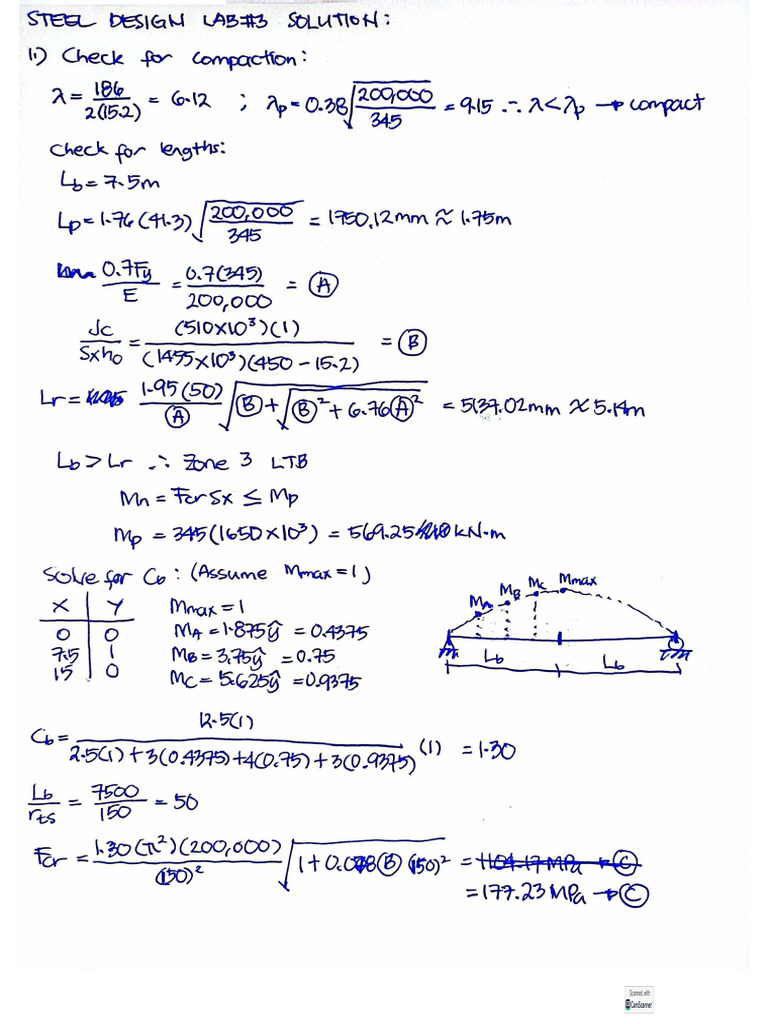 STEEL DESIGN LAB#3 SOLUTION:
1.) Check for compaction:
λ = 186 / 2(15.2) = 6.12 ; λp = 0.38 √(200,000 / 345) = 9.15 ∴ λ < λp → compact
Check for lengths:
Lb = 7.5m
Lp = 1.76 (41.3) √(200,000 / 345) = 1750.12 mm ≈ 1.75m
0.7Fy / E = 0.7(345) / 200,000 = Ⓐ
Jc / Sxho = (510x10³)(1) / (1455x10³)(450 - 15.2) = Ⓑ
Lr = 1.95(50) / Ⓐ √(Ⓑ + √(Ⓑ² + 6.76Ⓐ²)) = 5137.02mm ≈ 5.14m
Lb > Lr ∴ Zone 3 LTB
Mn = FcrSx ≤ Mp
Mp = 345(1650x10³) = 569.25 kN·m
Solve for Cb: (Assume Mmax = 1)
X Y
0 0
7.5 1
15 0
Mmax = 1
MA = 1.875ŷ = 0.4375
MB = 3.75ŷ = 0.75
MC = 5.625ŷ = 0.9375
MA MB Mc Mmax
Lb Lb
Cb = 12.5(1) / 2.5(1) + 3(0.4375) + 4(0.75) + 3(0.9375) (1) = 1.30
Lb / rts = 7500 / 150 = 50
Fcr = 1.30(π²)(200,000) / (150)² √(1 + 0.078 Ⓑ (150)²) = 1104.17 MPa → Ⓒ
= 177.23 MPa → Ⓒ
Scanned with
CamScanner